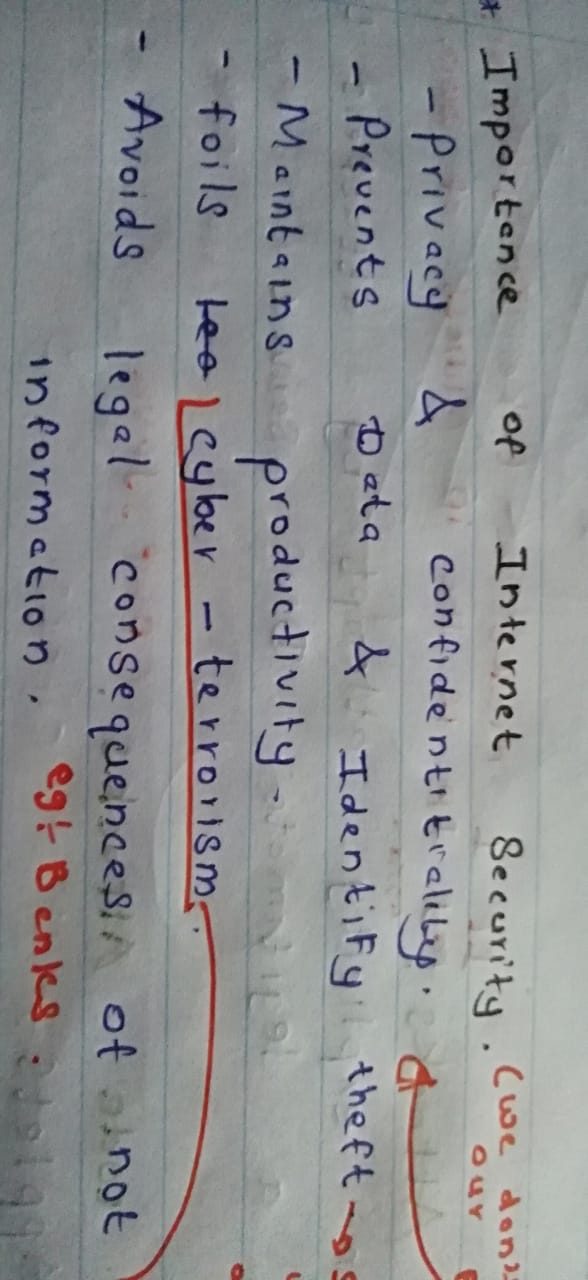 * Importance of Internet Security. (we don
our
- Privacy & confidentitrality.
- Prevents Data & Identify theft →
- Maintains productivity.
- foils cyber - terrorism.
- Avoids legal consequences of not
information. eg:- Banks.